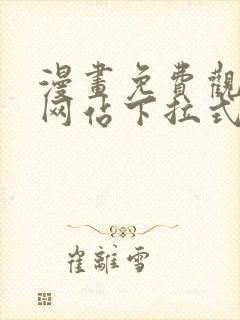 漫畫免費觀
网佔下拉式
崔離雪